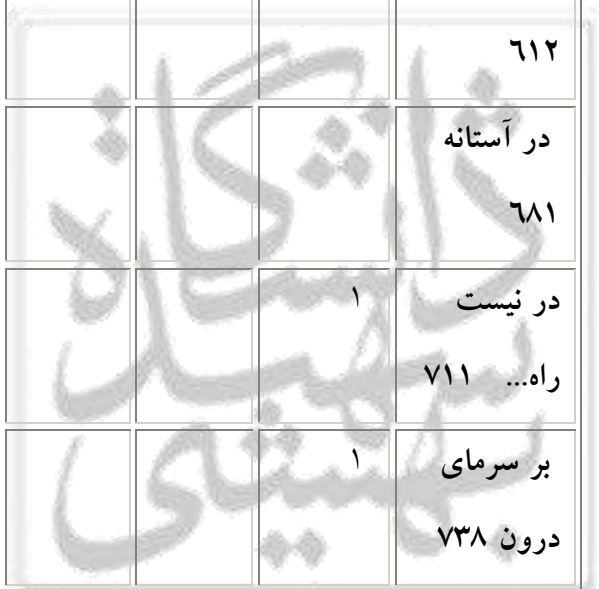 ٦١٢
در آستانه
٦٨١
در نیست ١
راه... ٧١١
بر سرمای ١
درون ٧٣٨
دانشگاه
شهید
بهشتی